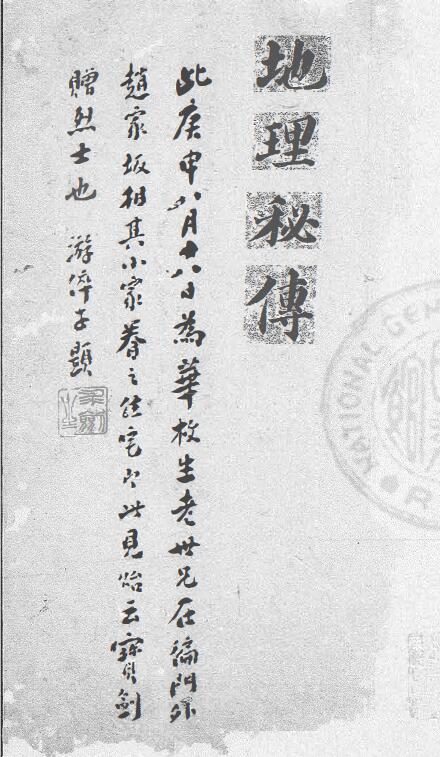 地理秘傳
此庚申八月十八日為華枚生老世兄在偏門外
趙家坂相其小家眷之陰宅以此見怡云寶劍
贈烈士也 游倅子題
NATIONAL GEN